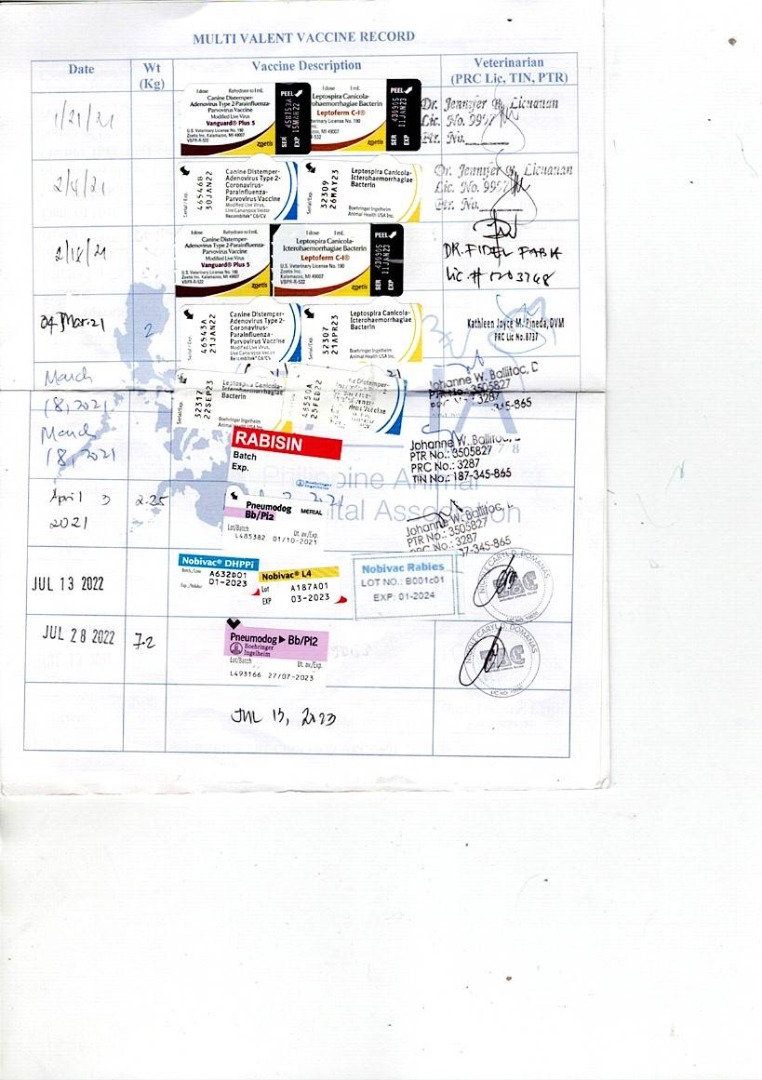 MULTI VALENT VACCINE RECORD
Date
Wt
(Kg)
Vaccine Description
Veterinarian
(PRC Lic, TIN, PTR)
1/21/21
1 dose Rehydrate to 1 mL
Canine Distemper-
Adenovirus Type 2-Parainfluenza-
Parvovirus Vaccine
Modified Live Virus
Vanguard® Plus 5
U.S. Veterinary License No. 190
Zoetis Inc. Kalamazoo, MI 49007
VBPR-R-522
zoetis
PEEL
SER
EXP 15MAR22
1 dose 1 mL
Leptospira Canicola-
Icterohaemorrhagiae Bacterin
Leptoferm C-I®
zoetis
PEEL
SER 436905
EXP 11JAN23
Dr. Jennifer Licuanan
Lic. No. 9952
Ptr. No.
2/4/21
Serial/Exp.
46546B
30JAN22
Canine Distemper-
Adenovirus Type 2-
Coronavirus-
Parainfluenza-
Parvovirus Vaccine
Modified Live Virus,
Live Canarypox Vector
Recombitek® C6/CV
Serial/Exp.
32309
26MAY23
Leptospira Canicola-
Icterohaemorrhagiae
Bacterin
Boehringer Ingelheim
Animal Health USA Inc.
Dr. Jennifer Licuanan
Lic. No. 9952
Ptr. No.
2/18/21
1 dose Rehydrate to 1 mL
Canine Distemper-
Adenovirus Type 2-Parainfluenza-
Parvovirus Vaccine
Modified Live Virus
Vanguard® Plus 5
U.S. Veterinary License No. 190
Zoetis Inc. Kalamazoo, MI 49007
VBPR-R-522
zoetis
1 dose 1 mL
Leptospira Canicola-
Icterohaemorrhagiae Bacterin
Leptoferm C-I®
U.S. Veterinary License No. 190
Zoetis Inc.
Kalamazoo, MI 49007
VBPR-R-522
zoetis
PEEL
SER 436905
EXP 11JAN23
DR. FIDEL
Lic #
04 Mar 21
2
Serial/Exp.
46543A
21JAN22
Canine Distemper-
Adenovirus Type 2-
Coronavirus-
Parainfluenza-
Parvovirus Vaccine
Modified Live Virus,
Live Canarypox Vector
Recombitek® C6/CV
Serial/Exp.
32307
21APR23
Leptospira Canicola-
Icterohaemorrhagiae
Bacterin
Boehringer Ingelheim
Animal Health USA Inc.
Kathleen Joyce M. Pineda, DVM
PRC Lic No. 8737
March
18, 2021
Serial/Exp.
32317
22SEP23
Leptospira Canicola-
Icterohaemorrhagiae
Bacterin
Boehringer Ingelheim
Animal Health USA Inc.
46550A
25FEB22
Johanne W. Ballitoc, D
PTR No.: 3505827
3287
345-865
March
18, 2021
RABISIN
Batch
Exp.
Johanne W. Ballitoc,
PTR No.: 3505827
PRC No.: 3287
TIN No.: 187-345-865
Philippine Animal
Hospital Association
April 3
2021
2.25
Pneumodog MERIAL
Bb/Pi2
Lot/Batch Ut. av./Exp.
L485382 01/10-2021
Johanne W. Ballitoc,
PTR No.: 3505827
PRC No.: 3287
87-345-865
JUL 13 2022
Nobivac® DHPPi
A632D01
01-2023
Nobivac® L4
Lot A187A01
EXP 03-2023
Nobivac Rabies
LOT NO.: B001c01
EXP: 01-2024
JUL 28 2022
7.2
Pneumodog Bb/Pi2
Boehringer
Ingelheim
Lot/Batch Ut. av./Exp.
L493166 27/07-2023
JUL 13, 2023